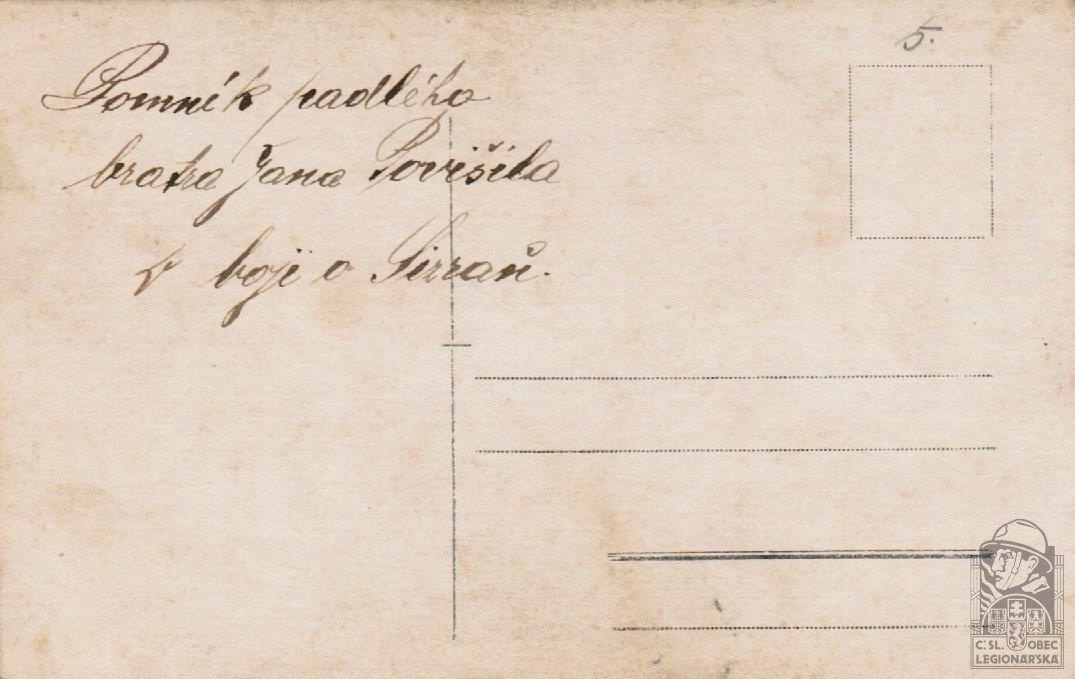 5.
Pomník padlého
bratra Jana Povišila
v boji o Sizraň.
Č.SL. OBEC
LEGIONÁŘSKÁ